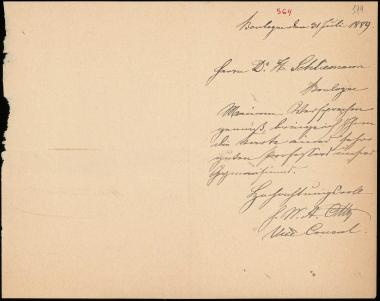 564
Boulogne den 31 Juli 1889
Herrn Dr. H. Schliemann
Boulogne
Meinem Versprechen
gemäß, bringe ich Ihnen
die Karte eines sehr
guten Professors unseres
Gymnasiums.
Hochachtungsvoll
Vice Consul.